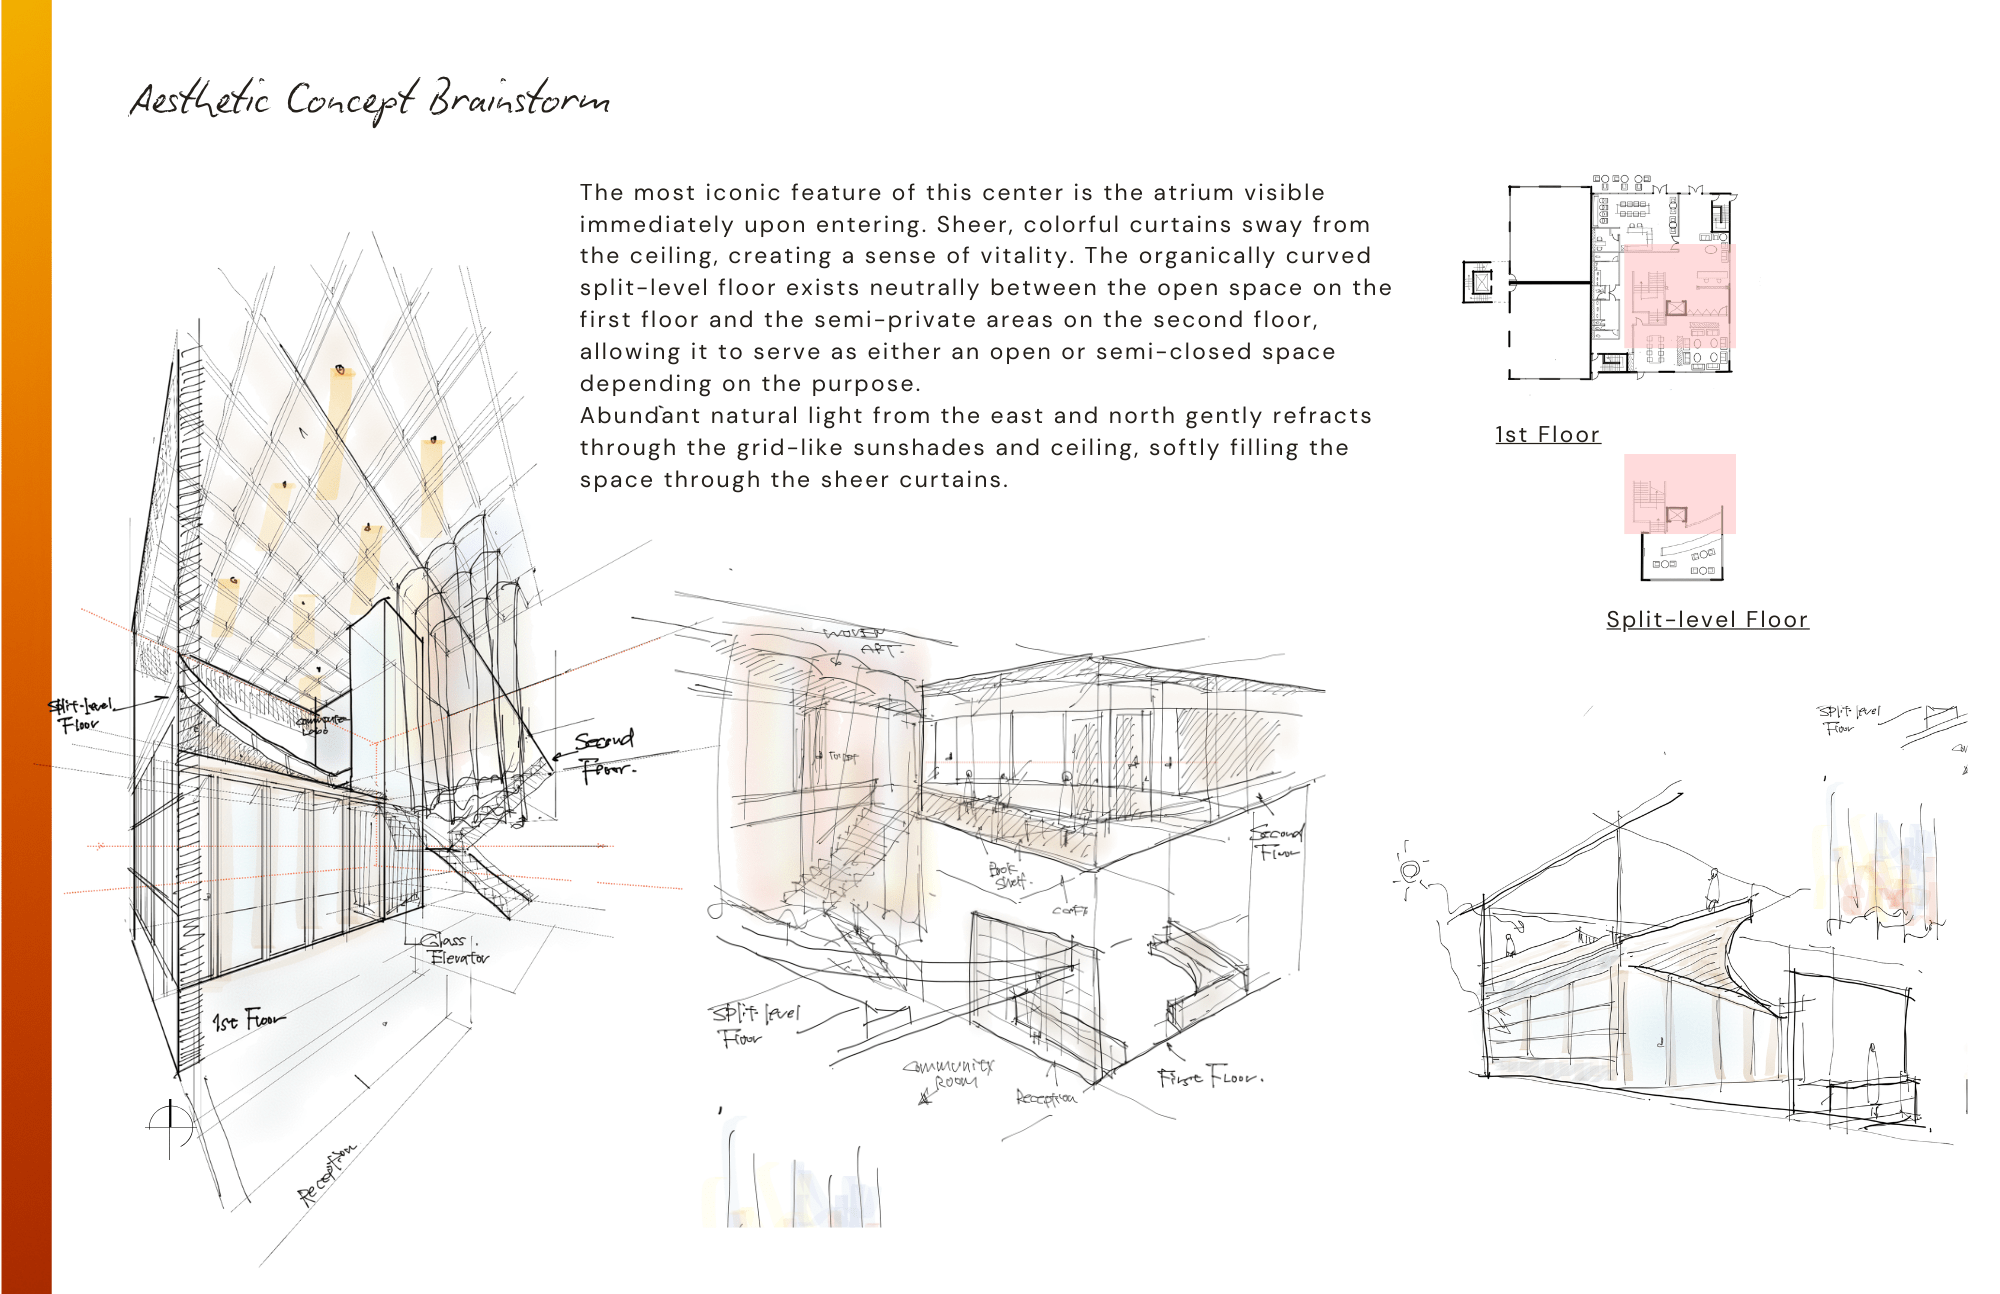 Aesthetic Concept Brainstorm
The most iconic feature of this center is the atrium visible
immediately upon entering. Sheer, colorful curtains sway from
the ceiling, creating a sense of vitality. The organically curved
split-level floor exists neutrally between the open space on the
first floor and the semi-private areas on the second floor,
allowing it to serve as either an open or semi-closed space
depending on the purpose.
Abundant natural light from the east and north gently refracts
through the grid-like sunshades and ceiling, softly filling the
space through the sheer curtains.
1st Floor
Split-level Floor
Split-level
Floor
Second
Floor.
Glass
Elevator
1st Floor
Reception
WOVEN
ART.
Second
Floor
Book
Shelf.
Split-level
Floor
Community
Room
Reception
First Floor.
Split-level
Floor